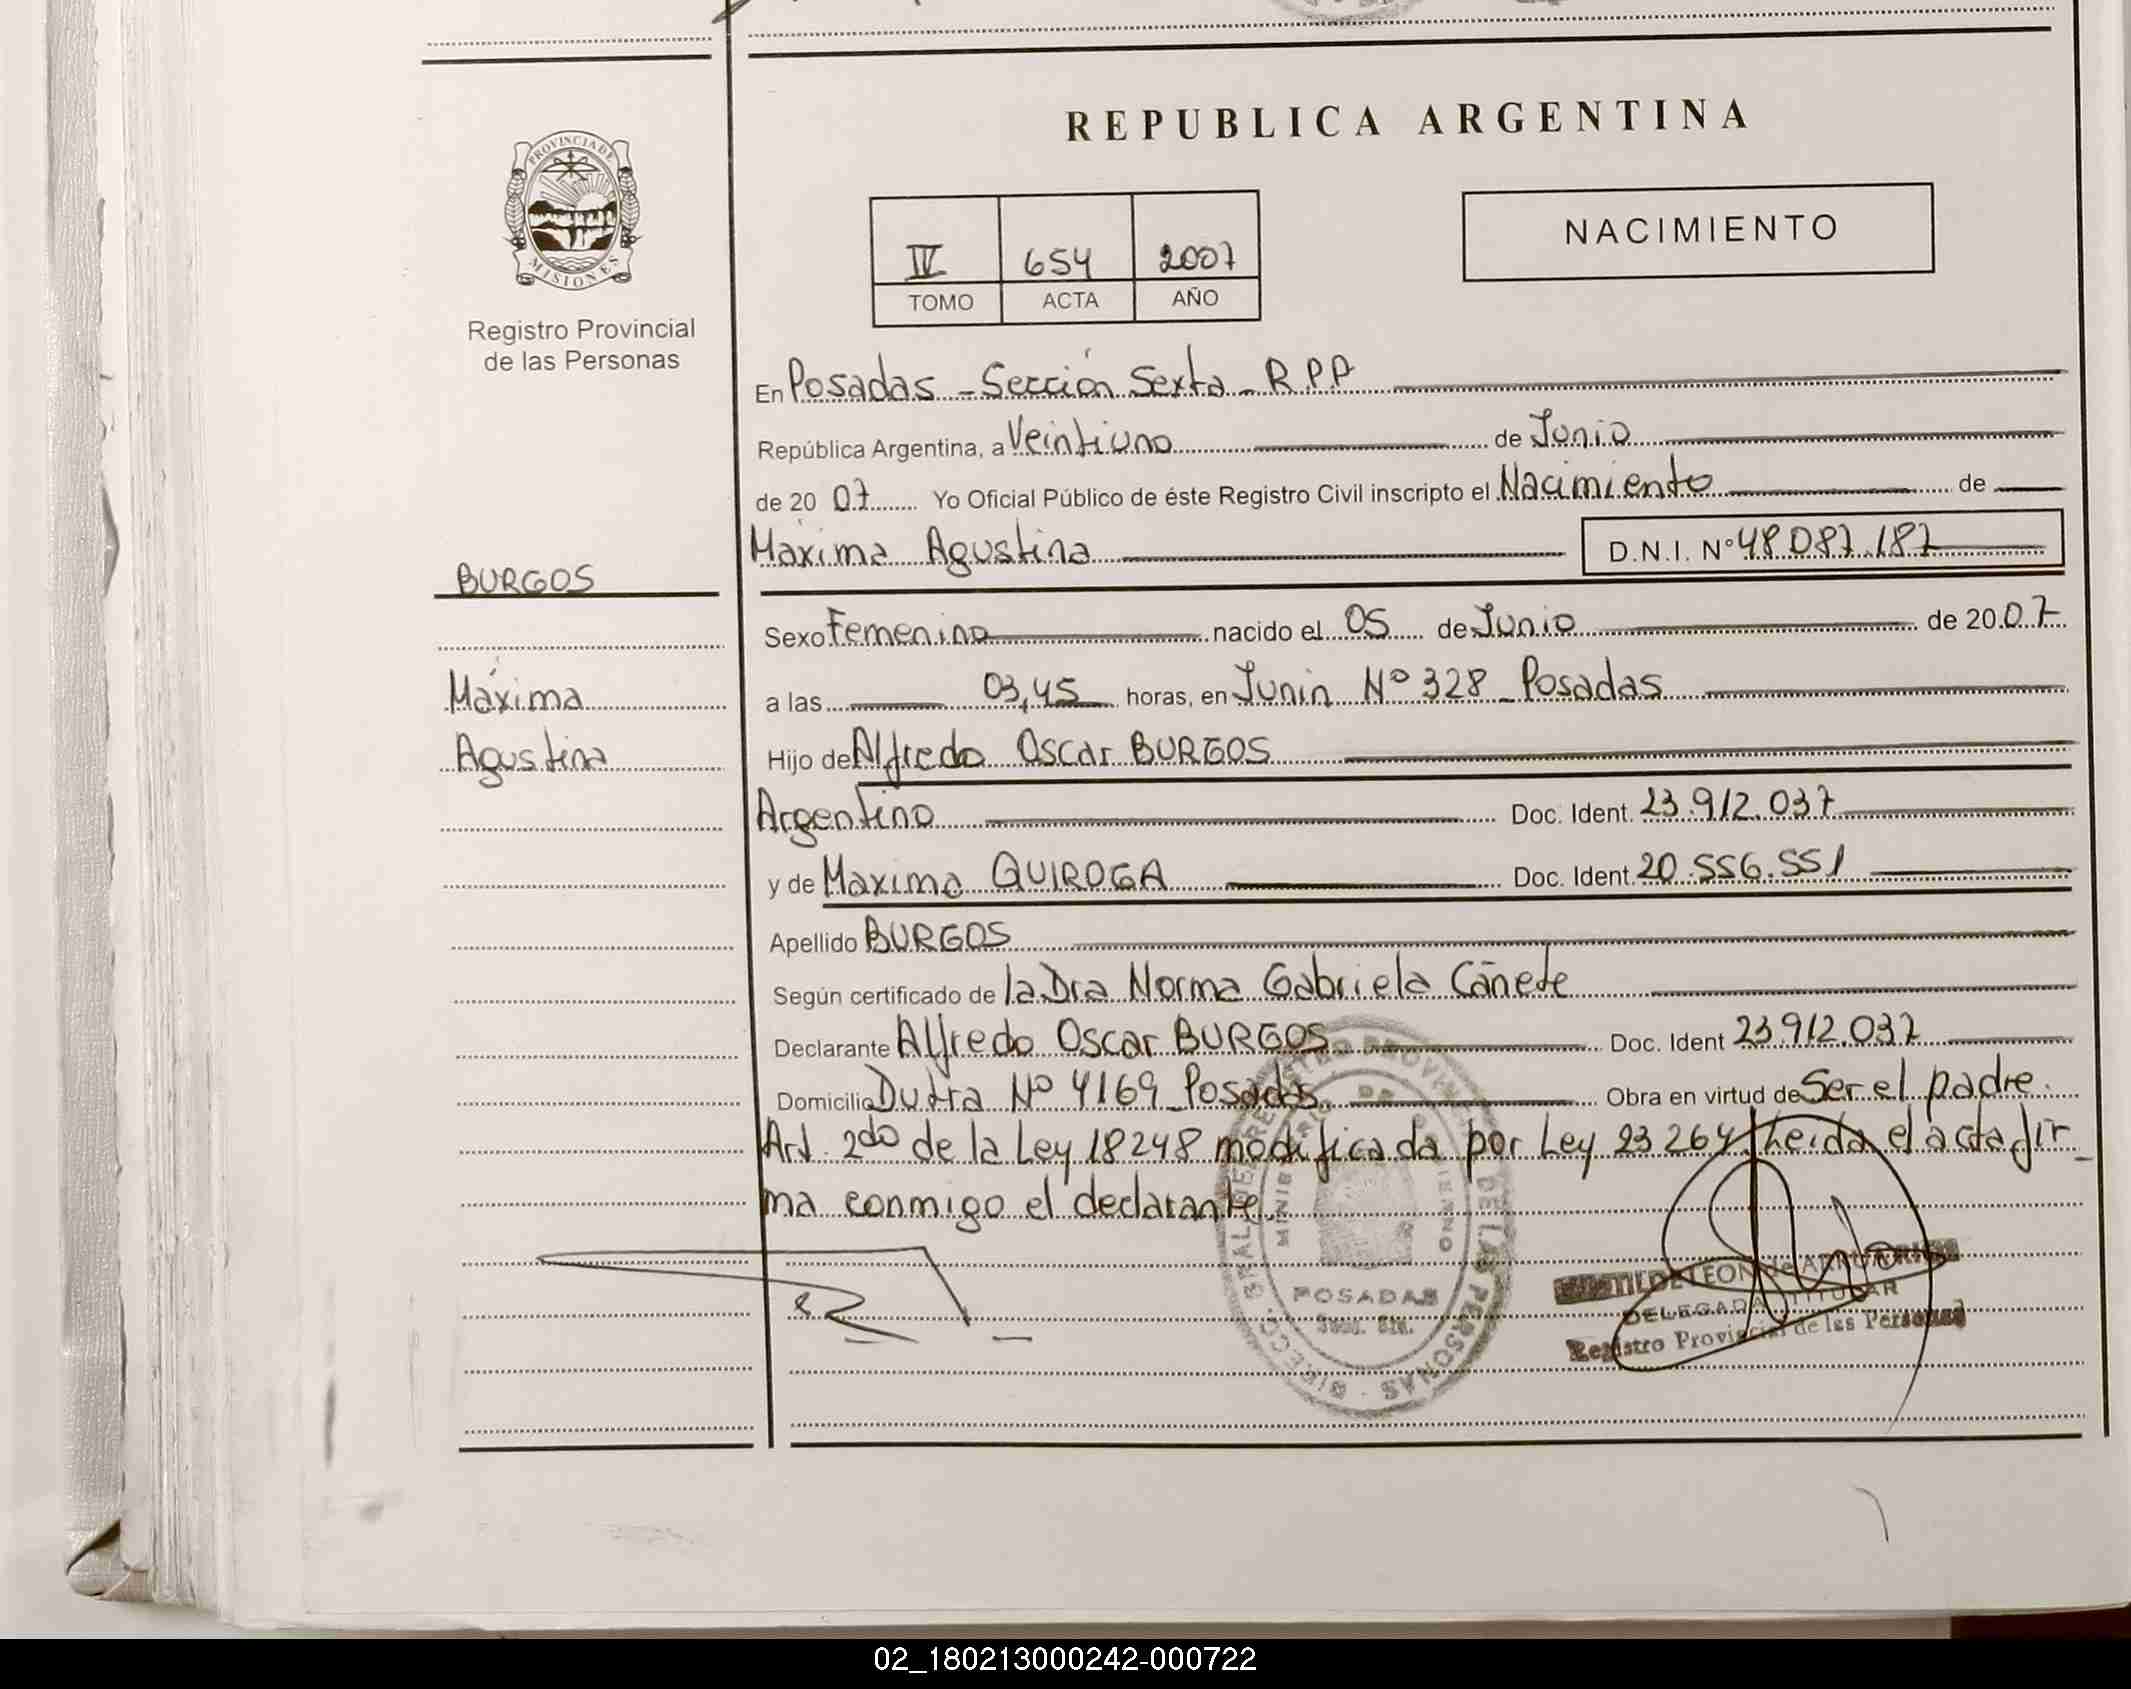 REPUBLICA ARGENTINA
PROVINCIA DE
MISIONES
Registro Provincial
de las Personas
IV 654 2007
TOMO ACTA AÑO
NACIMIENTO
En Posadas - Sección Sexta - R.P.P
República Argentina, a Veintiuno de Junio
de 20 07 Yo Oficial Público de éste Registro Civil inscripto el Nacimiento de
Máxima Agustina D.N.I. Nº 48 087.187
BURGOS
Sexo Femenino nacido el 05 de Junio de 20 07
Máxima
a las 03,45 horas, en Junin Nº 328 - Posadas
Agustina
Hijo de Alfredo Oscar BURGOS
Argentino Doc. Ident. 23.912.037
y de Maxima QUIROGA Doc. Ident. 20.556.551
Apellido BURGOS
Según certificado de la Dra Norma Gabriela Cañete
Declarante Alfredo Oscar BURGOS Doc. Ident 23.912.037
Domicilio Dutra Nº 4169 - Posadas Obra en virtud de Ser el padre.
Art. 2do de la Ley 18248 modificada por Ley 23264. Leida el acta fir_
ma conmigo el declarante.
POSADAS
DELEGADA TITULAR
Registro Provincial de las Personas
02_180213000242-000722